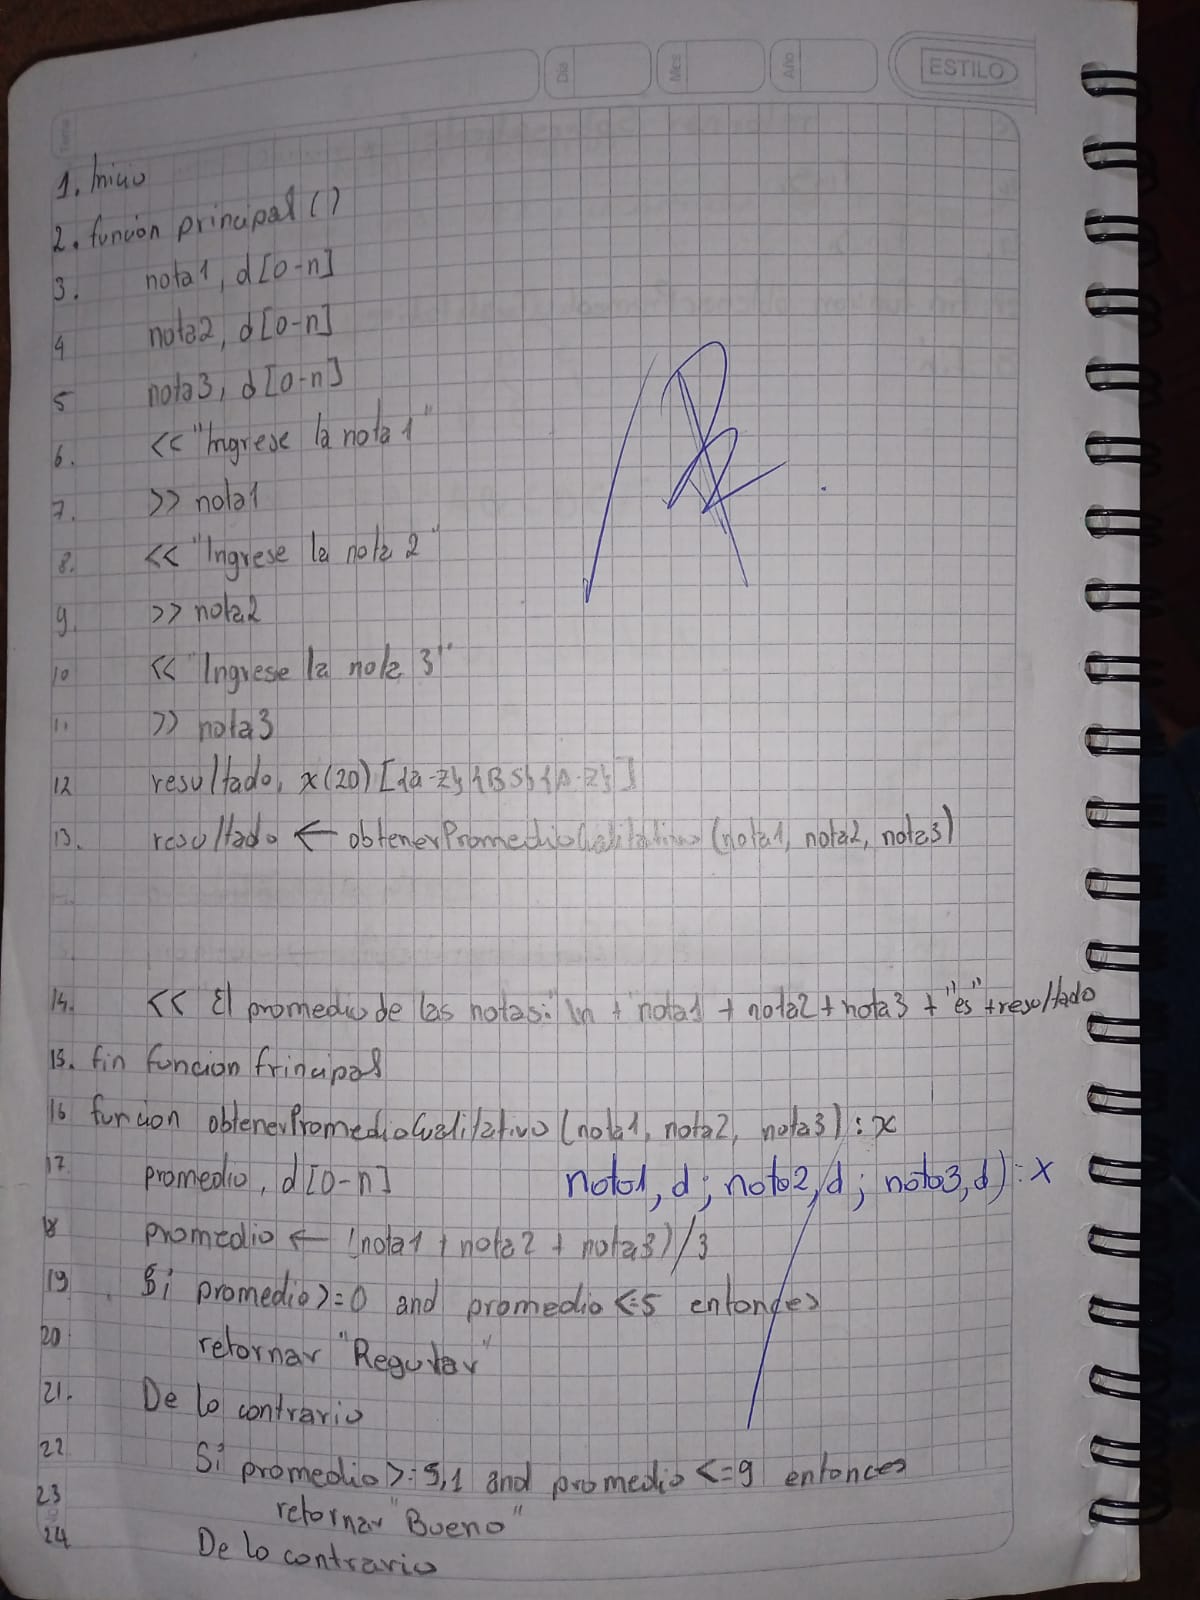 Tema
Día
Mes
Año
ESTILO
1. Inicio
2. función principal ( )
3. nota1, d [0-n]
4 nota2, d [0-n]
5 nota3, d [0-n]
6. << "Ingrese la nota 1"
7. >> nota1
8. << "Ingrese la nota 2"
9. >> nota2
10 << "Ingrese la nota 3"
11. >> nota3
12 resultado, x(20) [{a-z}{BS}{A-Z}]
13. resultado ← obtenerPromedioCualitativo (nota1, nota2, nota3)
14. << El promedio de las notas: \n + nota1 + nota2 + nota3 + "es" + resultado
15. fin funcion frincipal
16 funcion obtenerPromedioCualitativo (nota1, nota2, nota3) : x
17 promedio, d [0-n] nota1, d ; nota2, d ; nota3, d) : x
18 promedio ← (nota1 + nota2 + nota3) / 3
19 Si promedio >= 0 and promedio <= 5 entonces
20 retornar "Regular"
21. De lo contrario
22 Si promedio >= 5,1 and promedio <= 9 entonces
23 retornar "Bueno"
24 De lo contrario